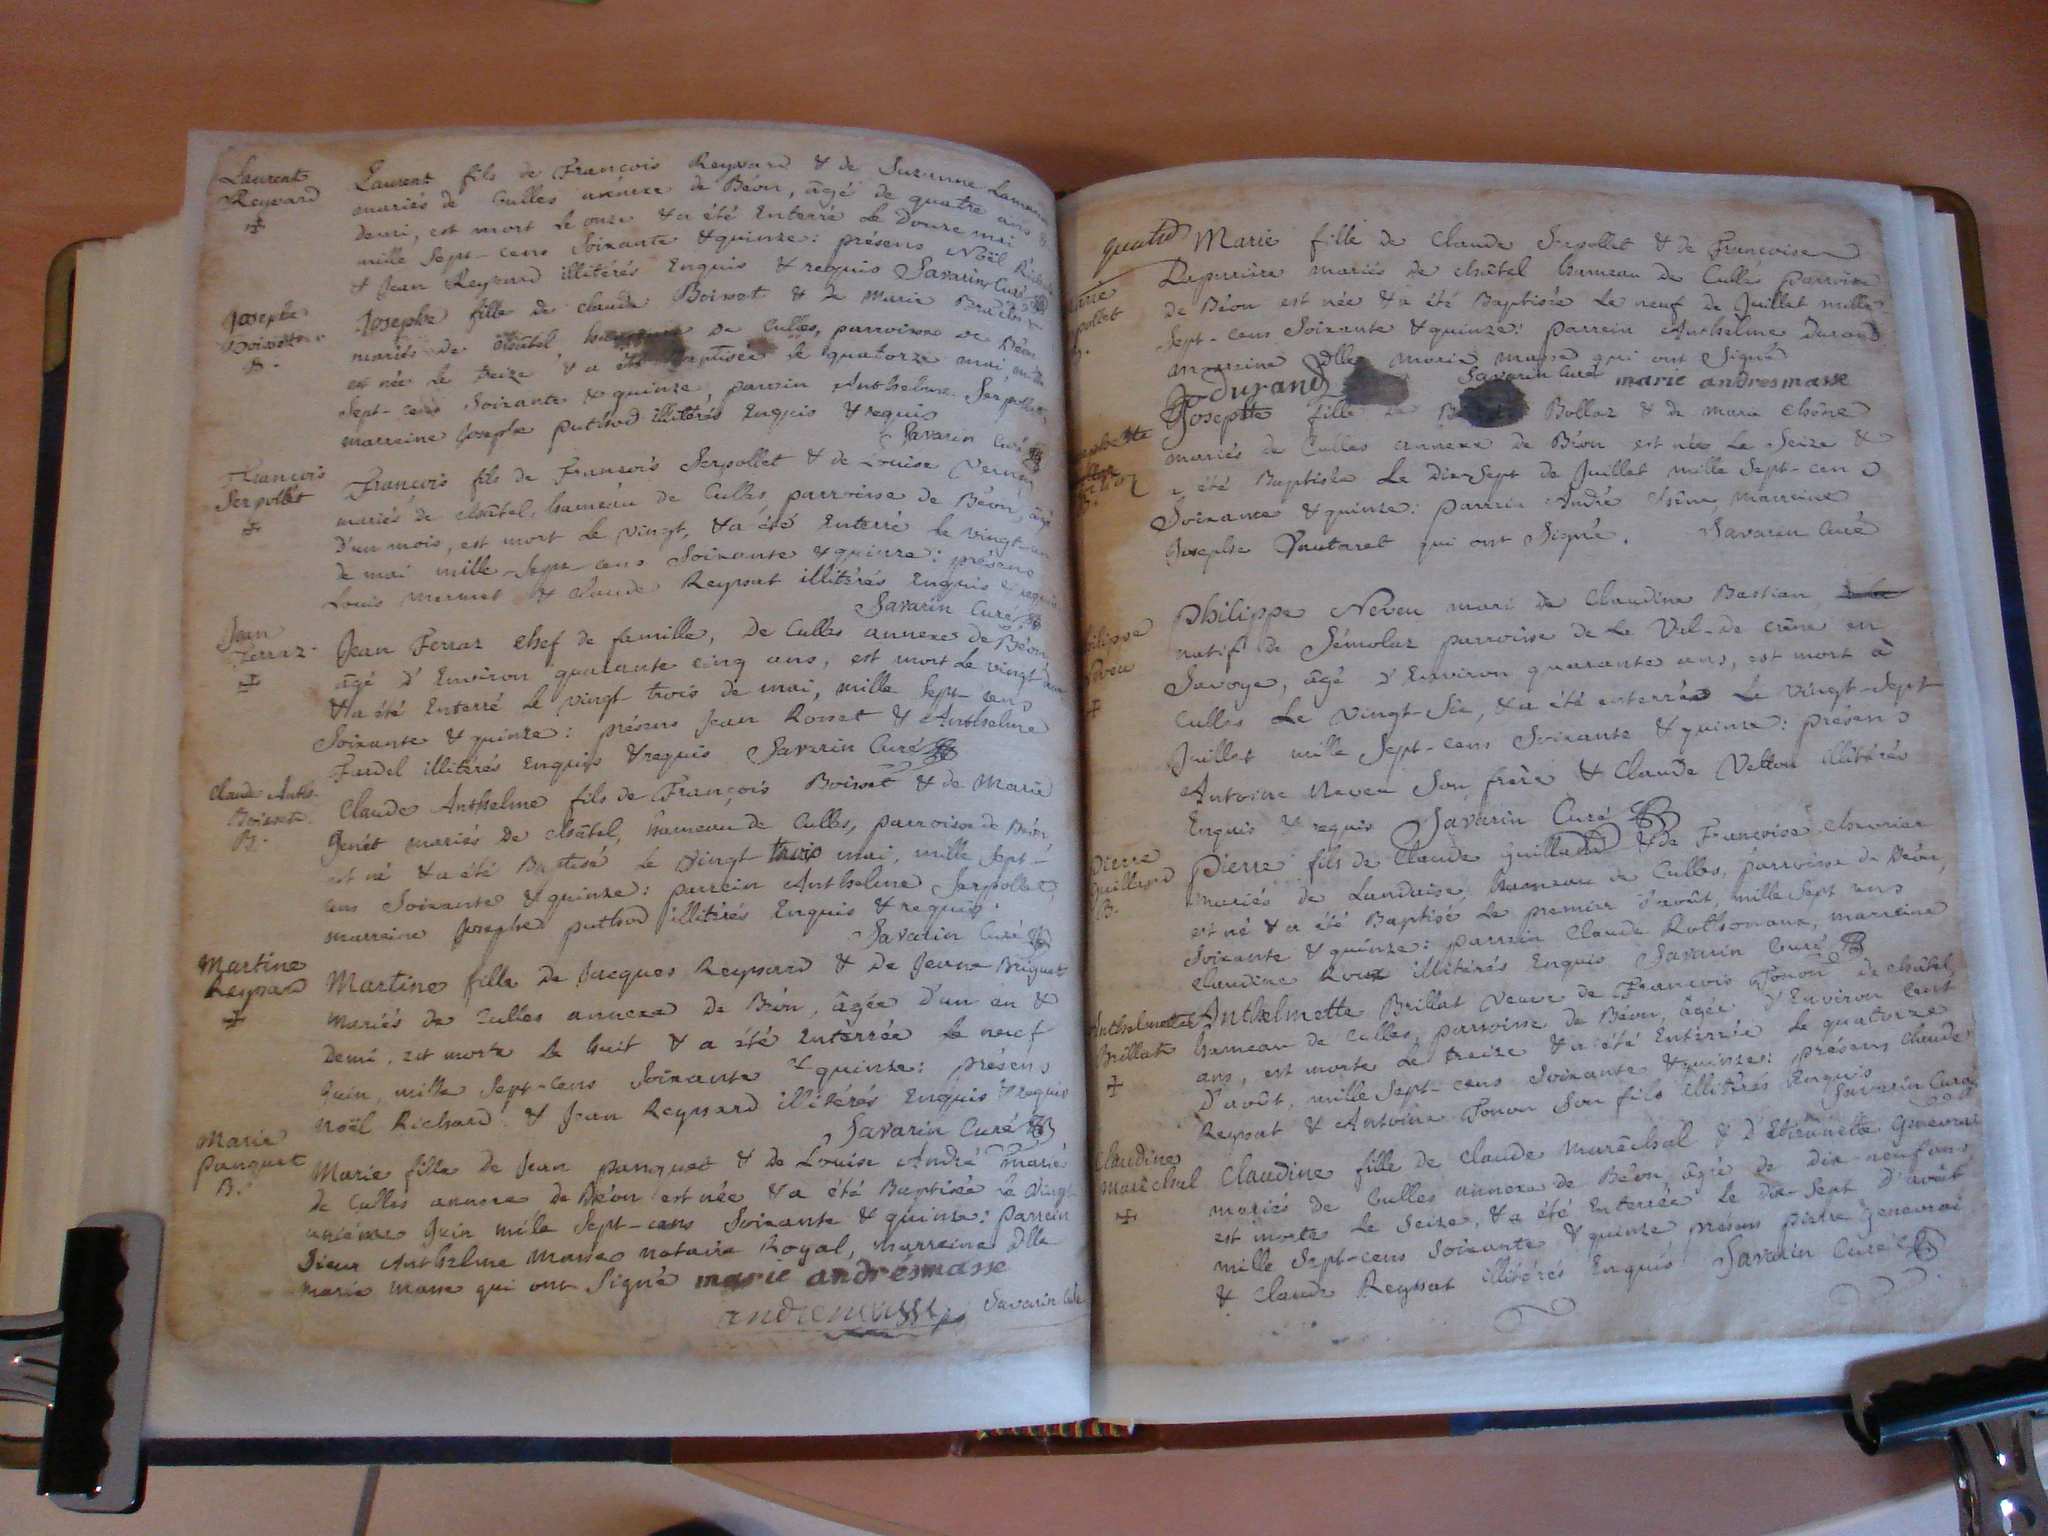 Laurent
Reyssard
Laurent fils de François Reyssard & de Suzanne
mariés de Culles annexe de Béon, âgé de quatre ans &
demi, est mort le onze & a été Enterré le Douze mai
mille Sept-cens Soixante & quinze: présens Noël
& Jean Reyssard illitérés Enquis & requis Savarin Curé
Josephe
Boissat
B.
Josephe fille de claude Boissat & de Marie
mariés de châtel, de Culles, parroisse de Béon
est née le treize & a été Baptisée le quatorze mai, mille
Sept-cens Soixante & quinze, parrein Anthelme Serpollet,
marreine Josephe puthod illitérés Enquis & requis
Savarin Curé
François
Serpollet
François fils de François Serpollet & de Louise
mariés de châtel, hameau de Culles, parroisse de Béon, âgé
d'un mois, est mort Le vingt, & a été Enterré le vingt-un
de mai mille-Sept-cens Soixante & quinze: présens
Louis mermet & claude Reyssat illitérés Enquis & requis
Savarin Curé
Jean
Ferraz
Jean Ferraz chef de famille, de Culles annexe de Béon
âgé d'Environ quarante cinq ans, est mort le vingt deux
& a été Enterré le vingt trois de mai, mille Sept-cens
Soixante & quinze: présens Jean Rosset & Anthelme
Fardel illitérés Enquis & requis Savarin Curé
Claude Anth.
Boissat
B.
Claude Anthelme fils de François Boissat & de Marie
Genêt mariés de châtel, hameau de Culles, parroisse de Béon
est né & a été Baptisé le vingt trois mai, mille Sept-
cens Soixante & quinze: parrein Anthelme Serpollet,
marreine Josephe puthod illitérés Enquis & requis.
Savarin Curé
Martine
Reyssard
Martine fille de Jacques Reyssard & de Jeane Briguet
mariés de Culles annexe de Béon, âgée d'un an &
demi, est morte le huit & a été Enterrée le neuf
Juin, mille Sept-cens Soixante & quinze: présens
Noël Richard & Jean Reyssard illitérés Enquis & requis
Savarin Curé
Marie
panquet
B.
Marie fille de Jean panquet & de Louise André mariés
de Culles annexe de Béon est née & a été Baptisée le vingt
unième Juin mille Sept-cens Soixante & quinze: parrein
Sieur Anthelme Masse notaire Royal, marreine dlle
marie masse qui ont Signé marie andrésmasse
andremasse Savarin Curé
quatre
Marie
Serpollet
B.
Marie fille de Claude Serpollet & de Françoise
Laperrière mariés de châtel hameau de Culles parroisse
de Béon est née & a été Baptisée Le neuf de Juillet mille
Sept-cens Soixante & quinze: parrein Anthelme Durand
marreine Dlle marie masse qui ont Signé
Durand Savarin Curé marie andresmasse
Josephte fille de Bollaz & de marie chêne
mariés de Culles annexe de Béon est née Le Seize &
a été Baptisée Le Dix Sept de Juillet mille Sept-cens
Soixante & quinze: parrein André chêne, marreine
Josephe Vautaret qui ont Signé. Savarin Curé
Philippe
Neveu
Philippe Neveu mari de Claudine Bastian
natif de Sémolaz parroisse de Le Val-de crêne en
Savoye, âgé d'Environ quarante ans, est mort à
Culles Le vingt-Six, & a été enterré Le vingt-Sept
Juillet mille Sept-cens Soixante & quinze: présens
Antoine Neveu Son frère & Claude Vetton illitérés
Enquis & requis Savarin Curé
Pierre
Guilland
B.
Pierre fils de Claude Guilland & de Françoise chevrier
mariés de Landaise, hameau de Culles, parroisse de Béon,
est né & a été Baptisé Le premier d'août, mille Sept cens
Soixante & quinze: parrein Claude Rothonaux, marreine
Claudine Roux illitérés Enquis Savarin Curé
Anthelmette
Brillat
Anthelmette Brillat Veuve de François Tonon de châtel,
hameau de Culles, parroisse de Béon, âgée d'Environ Cent
ans, est morte Le treize & a été Enterrée Le quatorze
D'août, mille Sept-cens Soixante & quinze: présens claude
Reyssat & Antoine Tonon Son fils illitérés Enquis
Savarin Curé
Claudine
maréchal
Claudine fille de Claude Maréchal & d'Etiennette Genevrai
mariés de Culles annexe de Béon, âgée de dix-neuf ans,
est morte Le Seize, & a été Enterrée Le dix-Sept d'août
mille Sept-cens Soixante & quinze, présens pierre Genevrai
& Claude Reyssat illitérés Enquis Savarin Curé